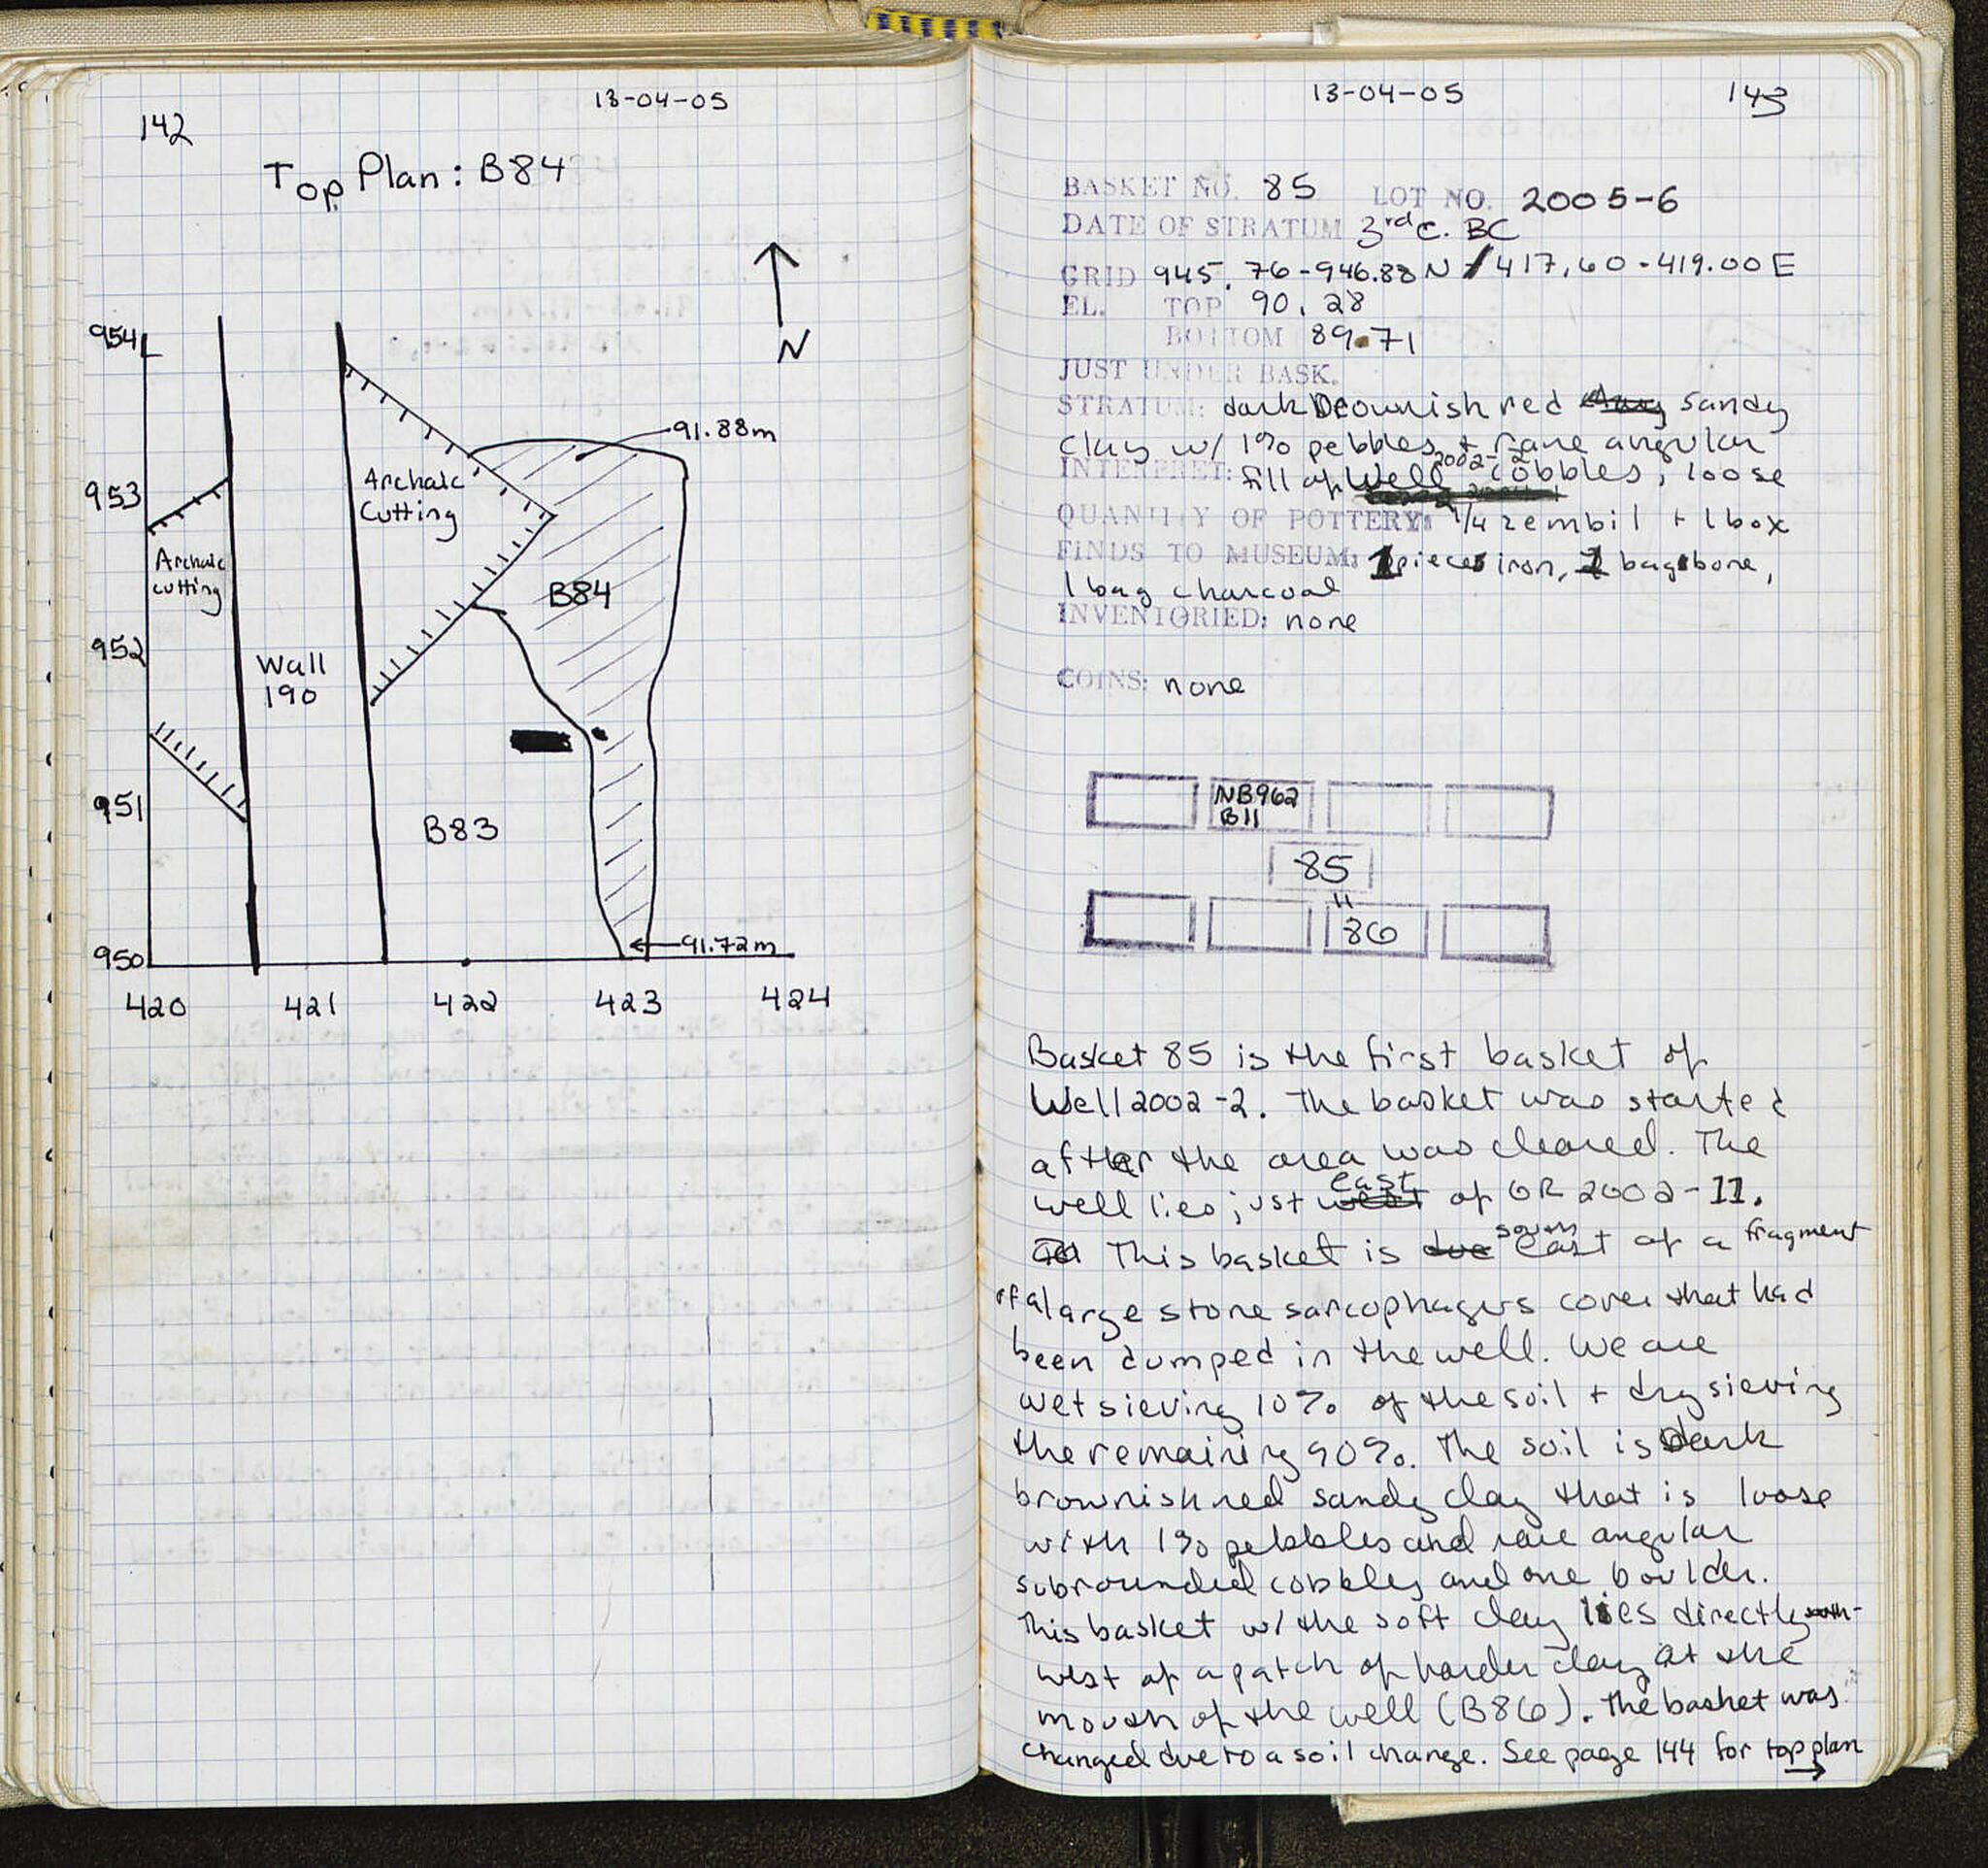 142
13-04-05
Top Plan: B84
N
954
953
952
951
950
420 421 422 423 424
91.88m
Archaic
Cutting
Archaic
cutting
B84
Wall
190
B83
91.72m
13-04-05
143
BASKET NO. 85 LOT NO. 2005-6
DATE OF STRATUM 3rd c. BC
GRID 945.76-946.88 N / 417.60-419.00 E
EL. TOP 90.28
BOTTOM 89.71
JUST UNDER BASK.
STRATUM: dark brownish red sandy
clay w/ 1% pebbles + rare angular
INTERPRET: fill of Well 2002-2 cobbles, loose
QUANTITY OF POTTERY: 1/4 zembil + 1 box
FINDS TO MUSEUM: 1 piece iron, 1 bag bone,
1 bag charcoal
INVENTORIED: none
COINS: none
NB962
B11
85
"
86
Basket 85 is the first basket of
Well 2002-2. The basket was started
after the area was cleared. The
well lies just west east of GR 2002-11.
This basket is due south east of a fragment
of a large stone sarcophagus cover that had
been dumped in the well. We are
wet sieving 10% of the soil + dry sieving
the remaining 90%. The soil is dark
brownish red sandy clay that is loose
with 1% pebbles and rare angular
subrounded cobbles and one boulder.
This basket w/ the soft clay lies directly south-
west of a patch of harder clay at the
mouth of the well (B86). The basket was
changed due to a soil change. See page 144 for top plan